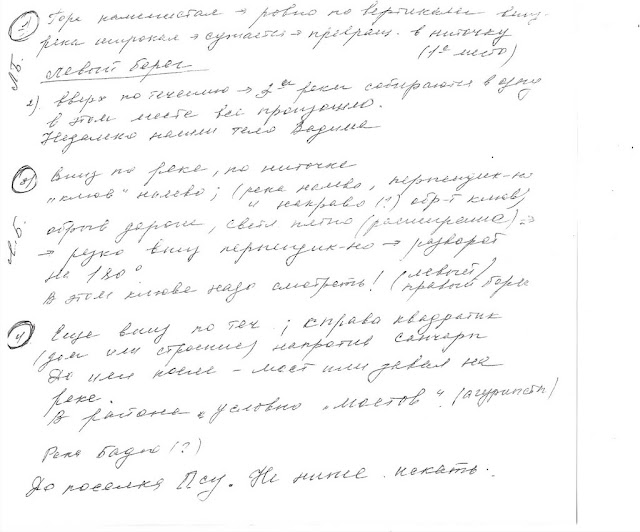 1) Гора каменистая → ровно по вертикали вниз.
Л.Б. река широкая → сужается → превращ. в ниточку
Левый берег (1е место)
2) Вверх по течению → 2е реки собираются в одну
в этом месте всё произошло.
Недалеко нашли тело Вадима
3) Вниз по реке, по ниточке
"клюв" налево; (река налево, перпендик-но
и направо (?) обр-т клюв)
Л.Б. обрыв дороги, светл пятно (расширение) ⇒
→ резко вниз перпендик-но → разворот
на 180°
В этом клюве надо смотреть! (левый) (правый берег
4) Еще вниз по теч.; справа квадратик
(дом или строение) напротив
До или после – мост или завал на
реке.
В районе "условно "мостов". ( )
Река (?)
До поселка Псу. Не ниже искать.